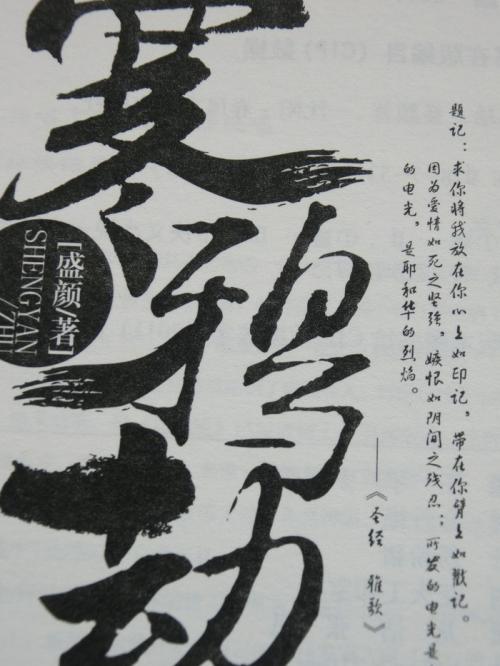 寒鸦劫
[盛颜/著]
SHENGYAN
/ZHU
题记：求你将我放在你心上如印记，带在你臂上如戳记。
因为爱情如死之坚强，嫉恨如阴间之残忍；所发的电光是
的电光，是耶和华的烈焰。
——《圣经 雅歌》